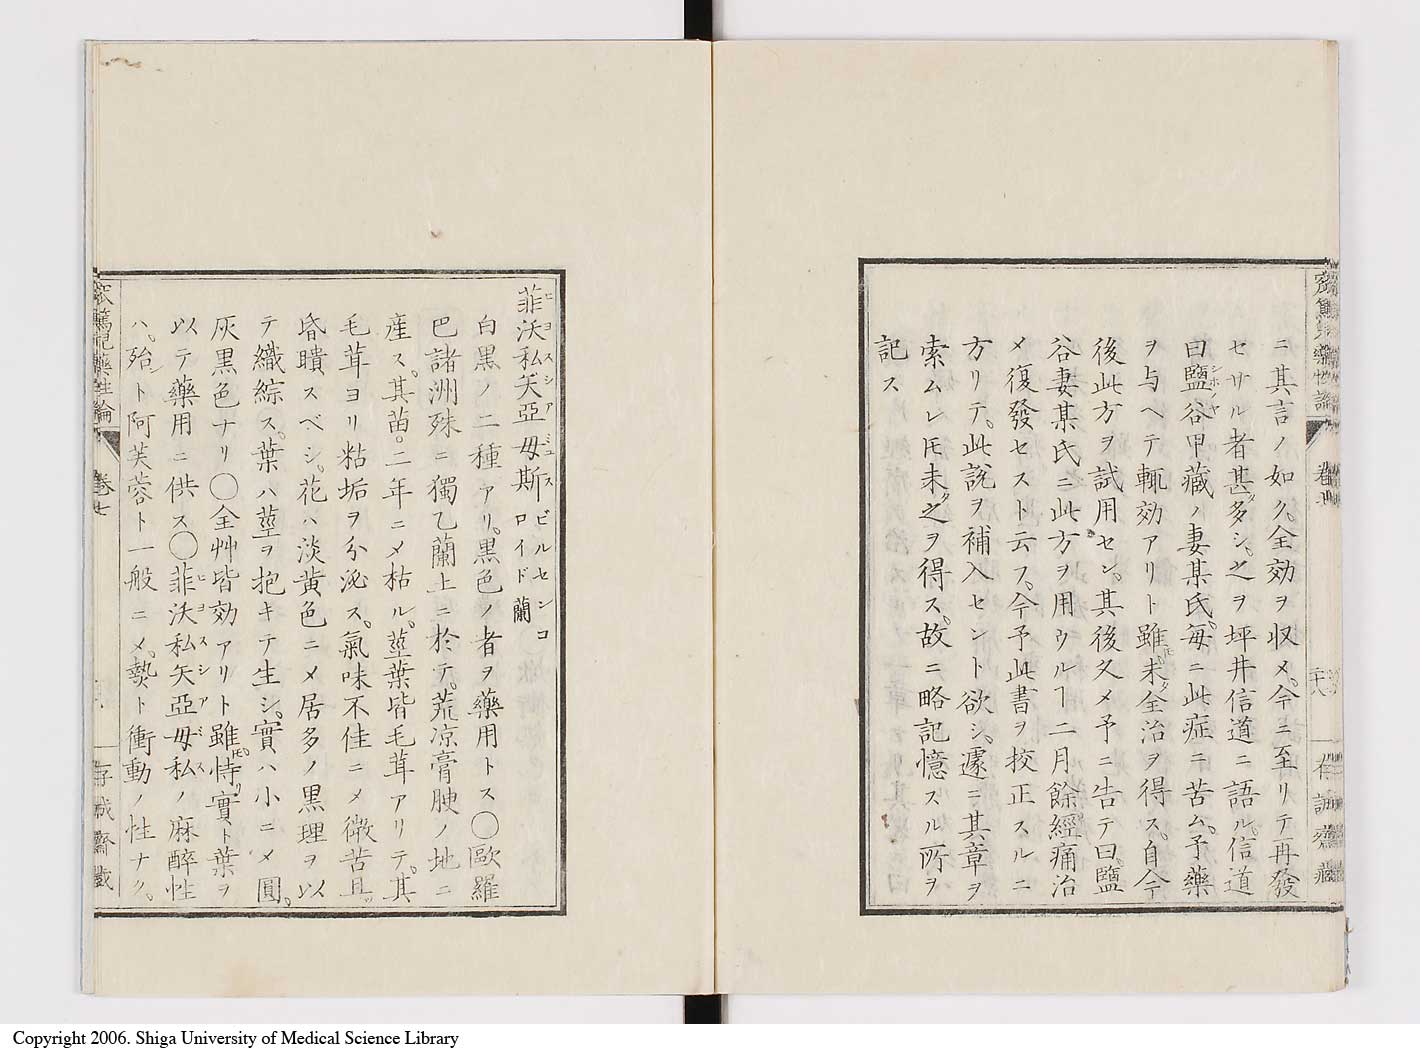 ニ其言ノ如ク。全効ヲ収メ。今ニ至リテ再發
セサル者甚タ多シ。之ヲ坪井信道ニ語ル。信道
曰鹽谷甲藏ノ妻某氏。毎ニ此症ニ苦ム。予藥
シホノヤ
ヲ与ヘテ輒効アリト雖𪜈未タ全治ヲ得ス。自今
後此方ヲ試用セン。其後久メ予ニ告テ曰。鹽
谷妻某氏ニ此方ヲ用ウルヿ二月餘。經痛治
メ復發セスト云フ。今予此書ヲ校正スルニ
方リテ。此説ヲ補入セント欲シ。遽ニ其章ヲ
索ムレ𪜈未タ之ヲ得ス。故ニ略記憶スル所ヲ
記ス
菲沃私矢亞毋斯 ビルセンコロイド蘭
ヒヨスシアミュス
白黒ノ二種アリ。黒色ノ者ヲ藥用トス〇歐羅
巴諸洲殊ニ獨乙蘭上ニ於テ。荒凉膏腴ノ地ニ
産ス。其苗。二年ニメ枯ル。莖葉皆毛茸アリテ。其
毛茸ヨリ粘垢ヲ分泌ス。氣味不佳ニメ微苦且。
昏瞶スベシ。花ハ淡黄色ニメ居多ノ黒理ヲ以
テ織綜ス。葉ハ莖ヲ抱キテ生シ。實ハ小ニメ圓。
灰黒色ナリ〇全艸皆効アリト雖𪜈恃リ實ト葉ヲ
以テ藥用ニ供ス〇菲沃私矢亞毋私ノ麻醉性
ヒヨスシアビス
ハ。殆ント阿芙蓉ト一般ニメ。熱ト衝動ノ性ナク。
窊篤兒藥性論
卷七
存誠齋藏